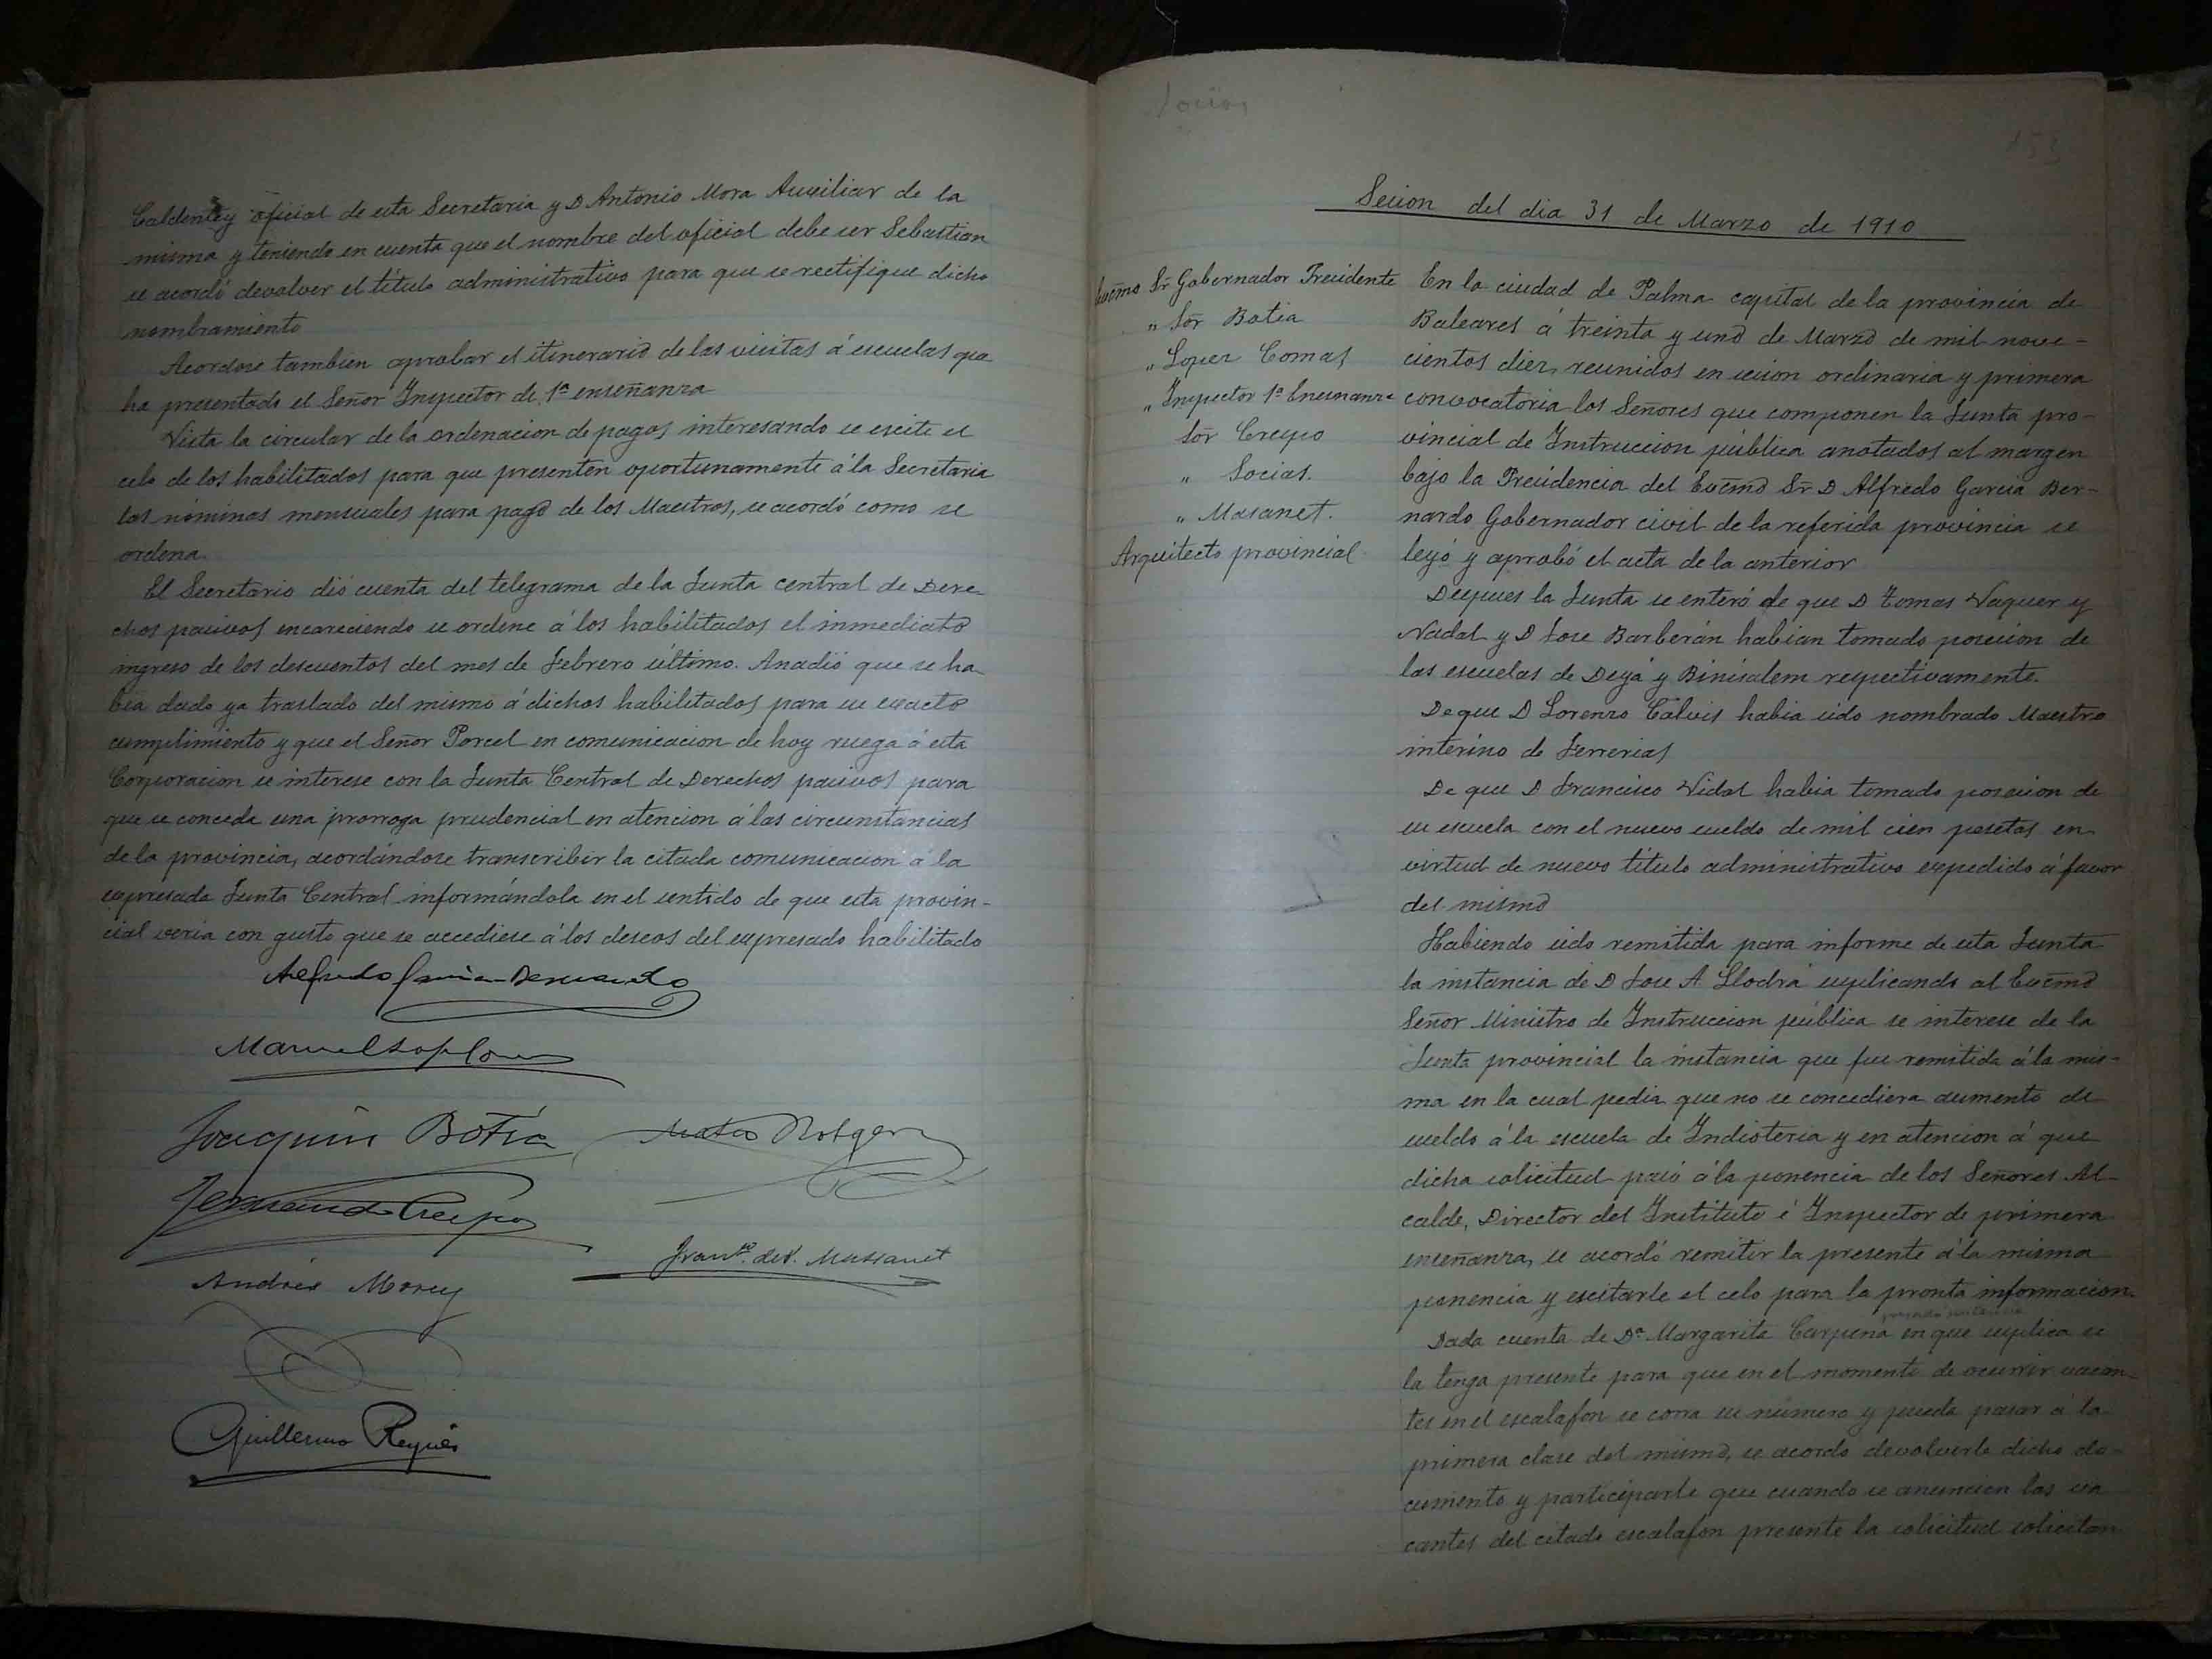 Caldentey oficial de esta Secretaria y D Antonio Mora Auxiliar de la
misma y teniendo en cuenta que el nombre del oficial debe ser Sebastian
se acordó devolver el título administrativo para que se rectifique dicho
nombramiento
Acordose tambien aprobar el itinerario de las visitas á escuelas que
ha presentado el Señor Inspector de 1ª enseñanza
Vista la circular de la ordenacion de pagos interesando se escite el
celo de los habilitados para que presenten oportunamente á la Secretaria
las nóminas mensuales para pago de los Maestros, se acordó como se
ordena.
El Secretario dió cuenta del telegrama de la Junta central de Dere-
chos pasivos encareciendo se ordene á los habilitados el inmediato
ingreso de los descuentos del mes de Febrero último. Anadió que se ha-
bia dado ya traslado del mismo á dichos habilitados para su exacto
cumplimiento y que el Señor Porcel en comunicacion de hoy ruega á esta
Corporacion se interese con la Junta Central de Derechos pasivos para
que se conceda una prorroga prudencial en atencion á las circunstancias
de la provincia, acordándose transcribir la citada comunicacion á la
expresada Junta Central informándola en el sentido de que esta provin-
cial veria con gusto que se accediese á los deseos del expresado habilitado
Alfredo Garcia-Bernardo
Joaquin Botia
Mateo Rotger
Fernando Crespo
Franco. de P. Massanet
Andrés Morey
Guillermo Reynés
Socias
153
Sesion del dia 31 de Marzo de 1910
Excmo Sr Gobernador Presidente
" Sor Botia
" Lopez Comas
" Inspector 1ª Ensenanza
Sor Crespo
" Socias.
" Masanet.
Arquitecto provincial
En la ciudad de Palma capital de la provincia de
Baleares á treinta y uno de Marzo de mil nove-
cientos diez, reunidos en sesion ordinaria y primera
convocatoria los Señores que componen la Junta pro-
vincial de Instruccion pública anotados al margen
bajo la Presidencia del Excmo Sr D Alfredo Garcia Ber-
nardo Gobernador civil de la referida provincia se
leyó y aprobó el acta de la anterior
Despues la Junta se enteró de que D Tomas Vaquer y
Nadal y D Jose Barberán habian tomado posesion de
las escuelas de Deyá y Binisalem respectivamente.
De que D Lorenzo Calvis habia sido nombrado Maestro
interino de Ferrerias
De que D Francisco Vidal habia tomado posesion de
su escuela con el nuevo sueldo de mil cien pesetas en
virtud de nuevo título administrativo expedido á favor
del mismo
Habiendo sido remitida para informe de esta Junta
la instancia de D Jose A Llodrá suplicando al Excmo
Señor Ministro de Instruccion pública se interese de la
Junta provincial la instancia que fue remitida á la mis-
ma en la cual pedia que no se concediera aumento de
sueldo á la escuela de Indioteria y en atencion á que
dicha solicitud pasó á la ponencia de los Señores Al-
calde, Director del Instituto é Inspector de primera
enseñanza, se acordó remitir la presente á la misma
ponencia y escitarle el celo para la pronta informacion.
Dada cuenta de Dª Margarita Carpena en que suplica se
la tenga presente para que en el momento de ocurrir vacan-
tes en el escalafon se corra su número y pueda pasar á la
primera clase del mismo, se acordo devolverle dicho do-
cumento y participarle que cuando se anuncien las va
cantes del citado escalafon presente la solicitud solicitan